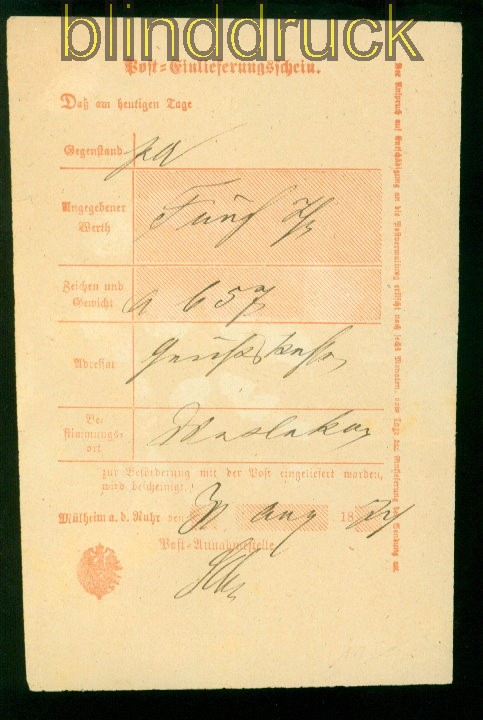 blinddruck
Post-Einlieferungsschein.
Daß am heutigen Tage
Gegenstand
Angegebener Werth Fünf
Zeichen und Gewicht a 657
Adressat
Bestimmungsort
zur Beförderung mit der Post eingeliefert worden,
wird bescheinigt.
Mülheim a. d. Ruhr den aug 18
Post-Annahmestelle
Der Anspruch auf Entschädigung an die Postverwaltung erlischt nach sechs Monaten, vom Tage der Einlieferung der Sendung ab.